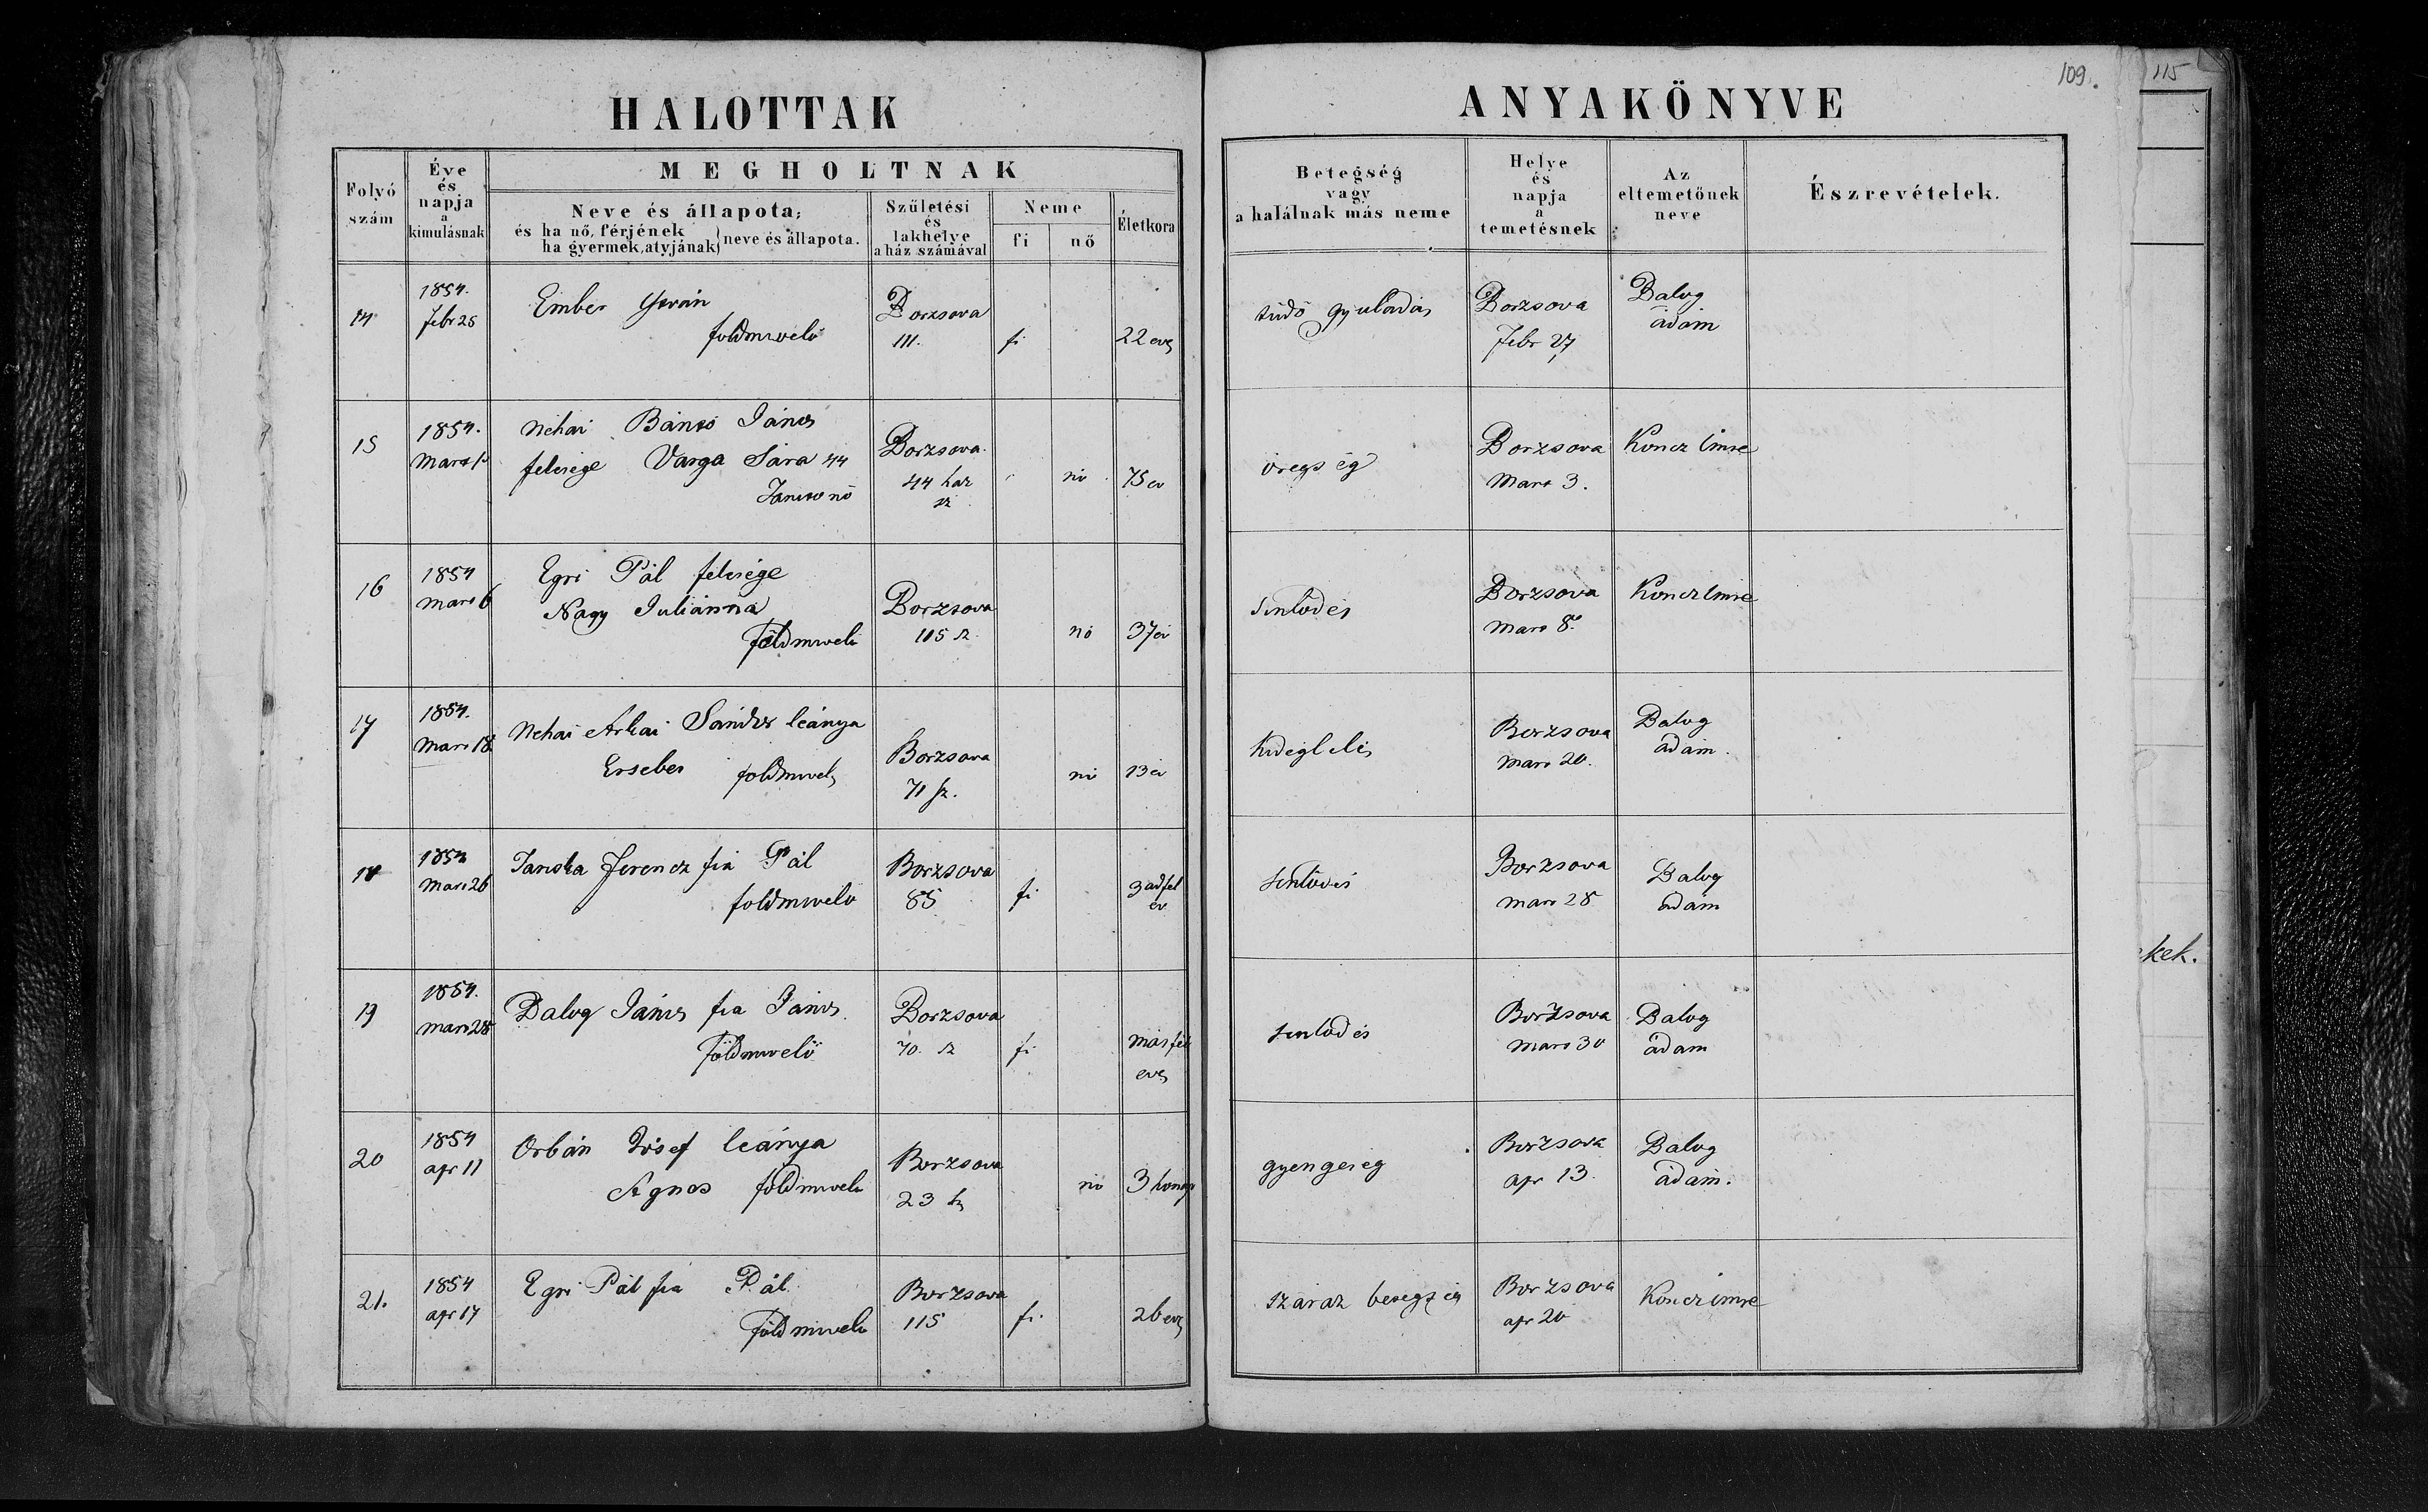 109.
115
HALOTTAK
ANYAKÖNYVE
Folyó
szám
Éve
és
napja
a
kimulásnak
MEGHOLTNAK
Neve és állapota;
és ha nő, férjének
ha gyermek, atyjának
neve és állapota.
Születési
és
lakhelye
a ház számával
Neme
fi
nő
Életkora
Betegség
vagy
a halálnak más neme
Helye
és
napja
a
temetésnek
Az
eltemetőnek
neve
Észrevételek.
14
1854.
Febr 25
Ember
földmivelö
Borzsova
111.
fi
22 eves
tüdö gyuladás
Borzsova
Febr 27
Balog
ádám
15
1854.
Mehai János
felesége Varga Sára 44
Borzsova
44 ház
sz
nö
75 ev
öregség
Borzsova
Mars 3.
Koncz Imre
16
1854
mars 6
Egri Pál felesége
Nagy Juliánna
földmivelö
Borzsova
115 sz
nö
37 ev
Sinlödés
Borzsova
Mars 8.
Koncz Imre
17
1854.
Mars 18
Nehai Sándor leánya
földmives
Borzsova
71 sz.
nö
13 ev
hideglelés
Borzsova
mars 20.
Balog
ádám.
18
1854
Mars 26
Ferencz fia Pál
földmivelö
Borzsova
85
fi
3ad fel
ev
sinlödés
Borzsova
mars 28
Balog
ádám
19
1854.
mars 28
Balog János fia János
földmivelö
Borzsova
70. sz
fi
másfél
eves
sinlödés
Borzsova
mars 30
Balog
ádam
20
1854
apr 11
Orbán Jósef leánya
Agnes földmivelö
Borzsova
23
nö
3 honap
gyengeség
Borzsova
apr 13.
Balog
ádám.
21.
1854
apr 17
Egri Pál fia Pál
földmivelö
Borzsova
115
fi.
száraz betegség
Borzsova
apr 20
Koncz imre
kek.